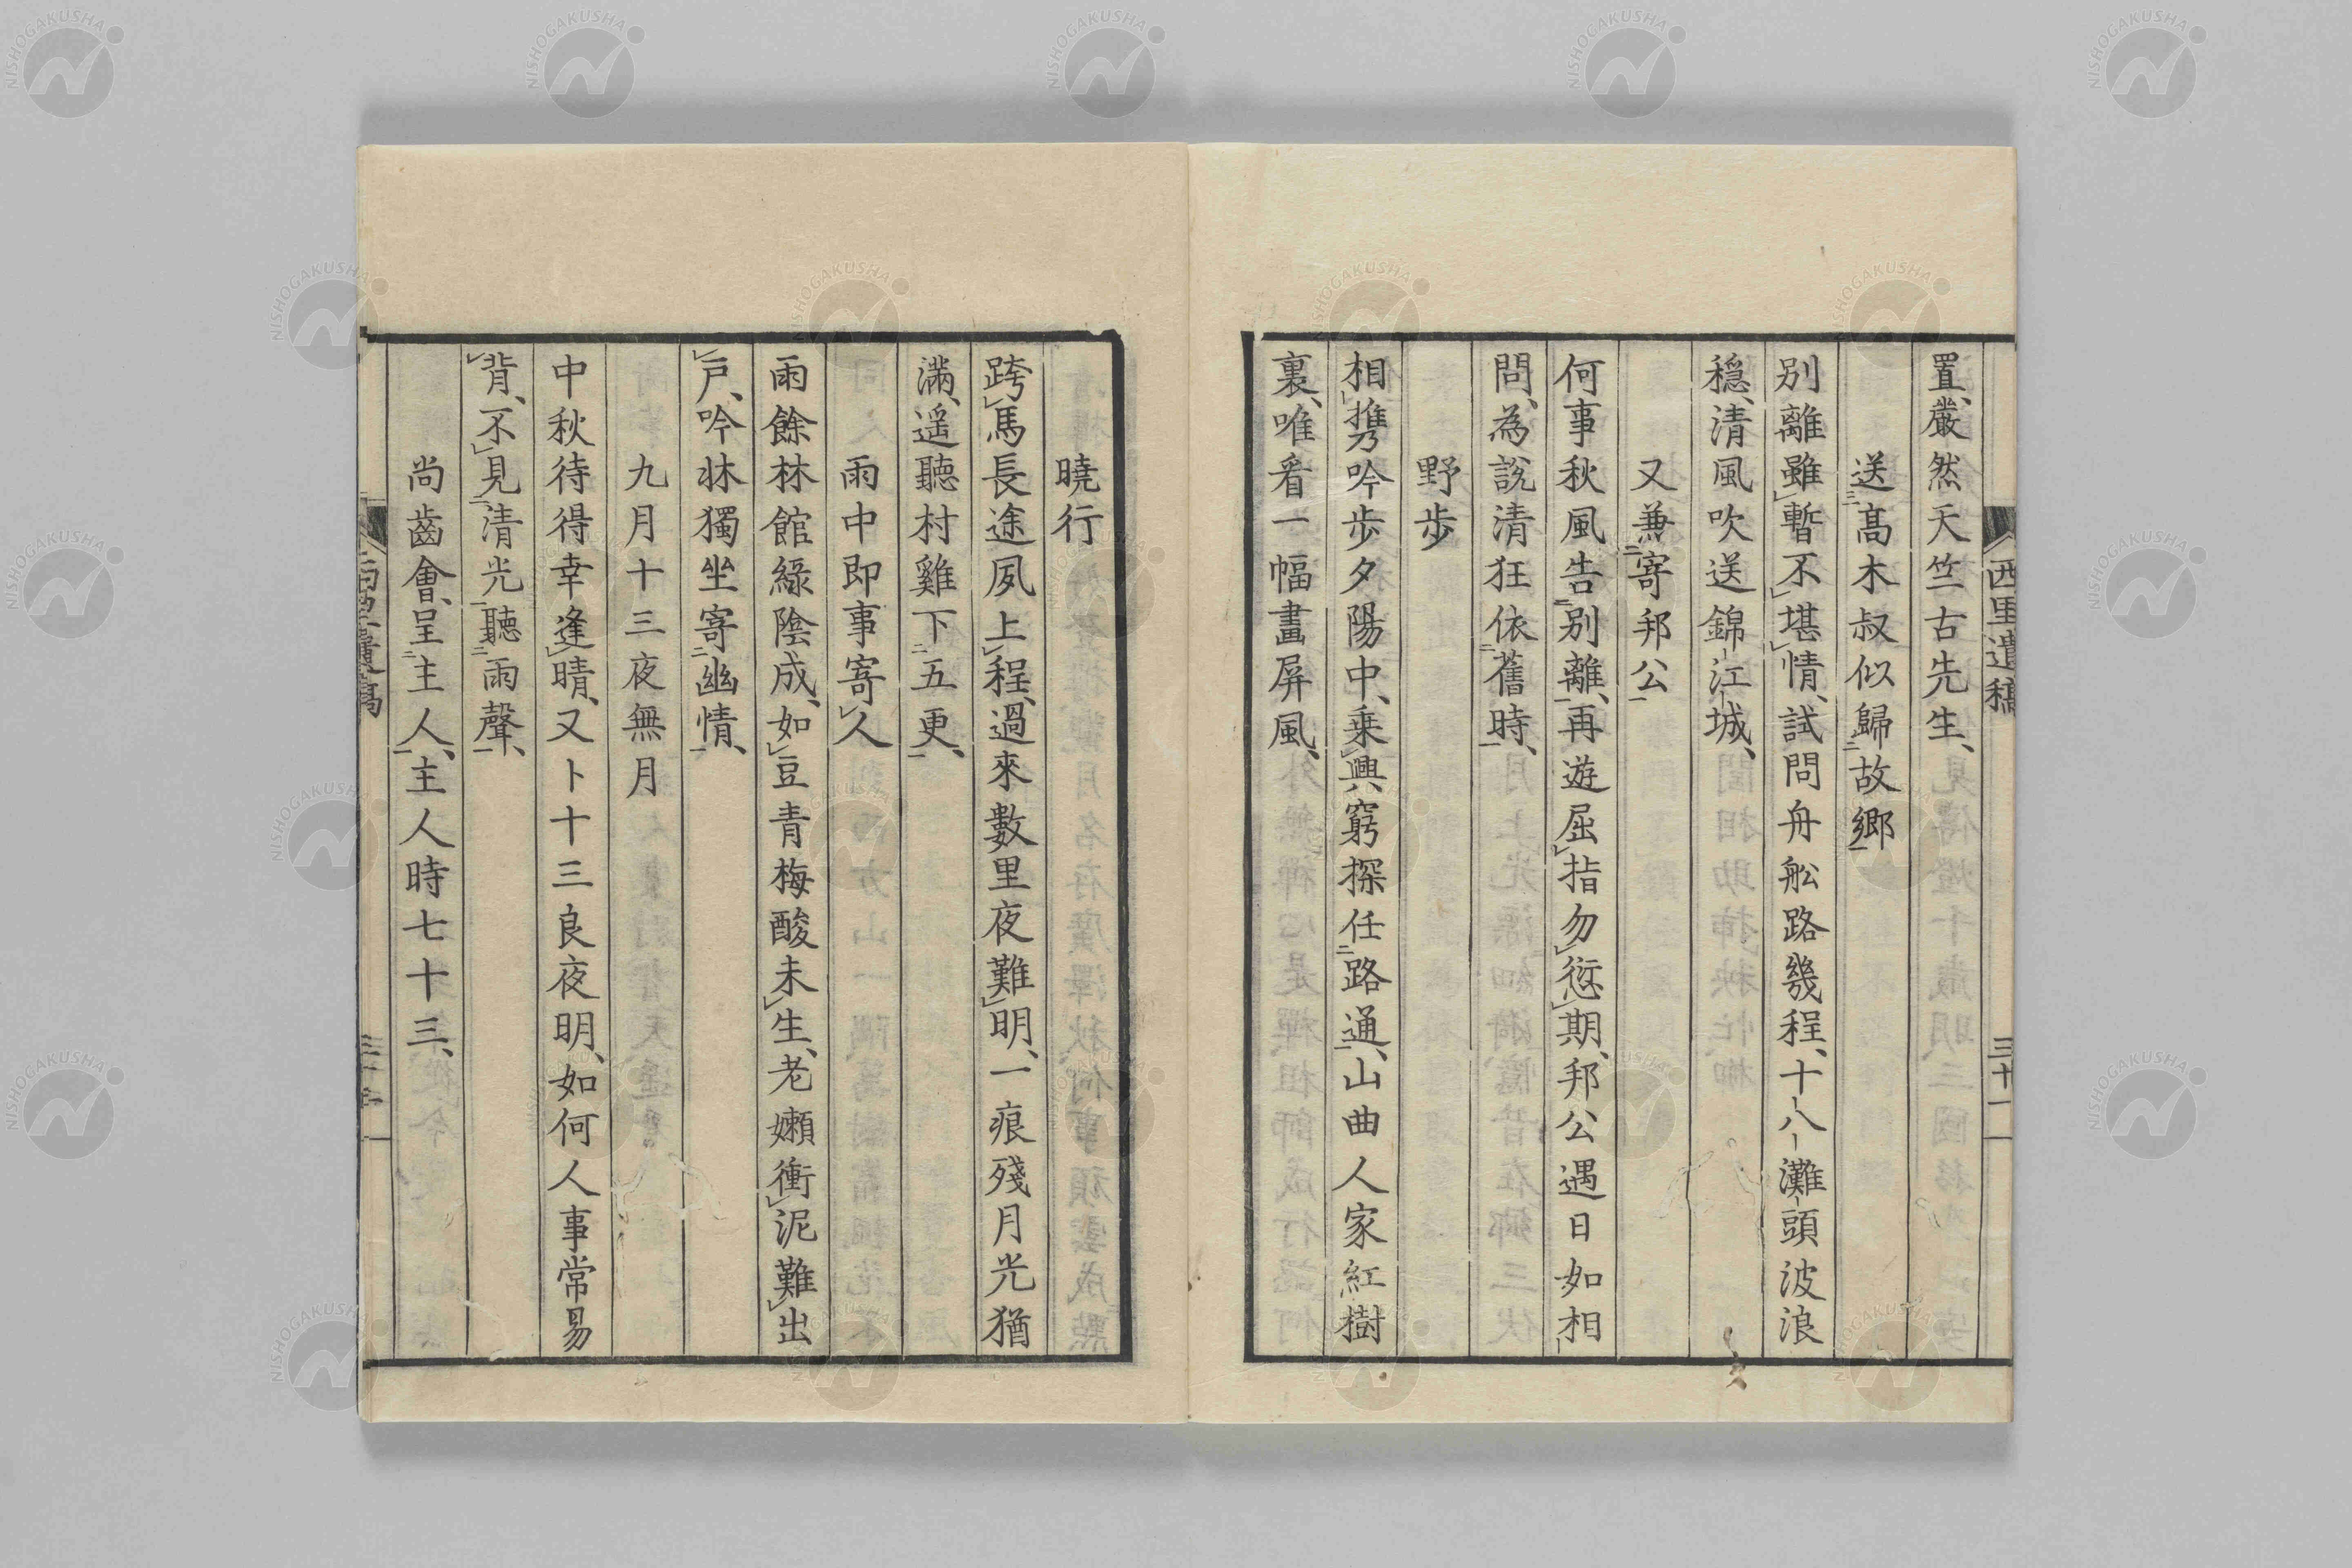 西里遺稿 三十一
置、嚴然天竺古先生、
送高木叔似歸故鄉
別離雖暫不堪情、試問舟舩路幾程、十八灘頭波浪
穩、清風吹送錦江城、
又兼寄邦公
何事秋風告別離、再遊屈指勿愆期、邦公遇日如相
問、為說清狂依舊時、
野歩
相攜吟歩夕陽中、乗興窮探任路通、山曲人家紅樹
裏、唯看一幅畫屏風、
曉行
跨馬長途夙上程、過來數里夜難明、一痕殘月光猶
滿、遥聽村雞下五更、
雨中即事寄人
雨餘林館綠陰成、如豆青梅酸未生、老嬾衝泥難出
戶、吟牀獨坐寄幽情、
九月十三夜無月
中秋待得幸逢晴、又卜十三良夜明、如何人事常易
背、不見清光聽雨聲、
尚齒會、呈主人、主人時七十三、
NISHOGAKUSHA